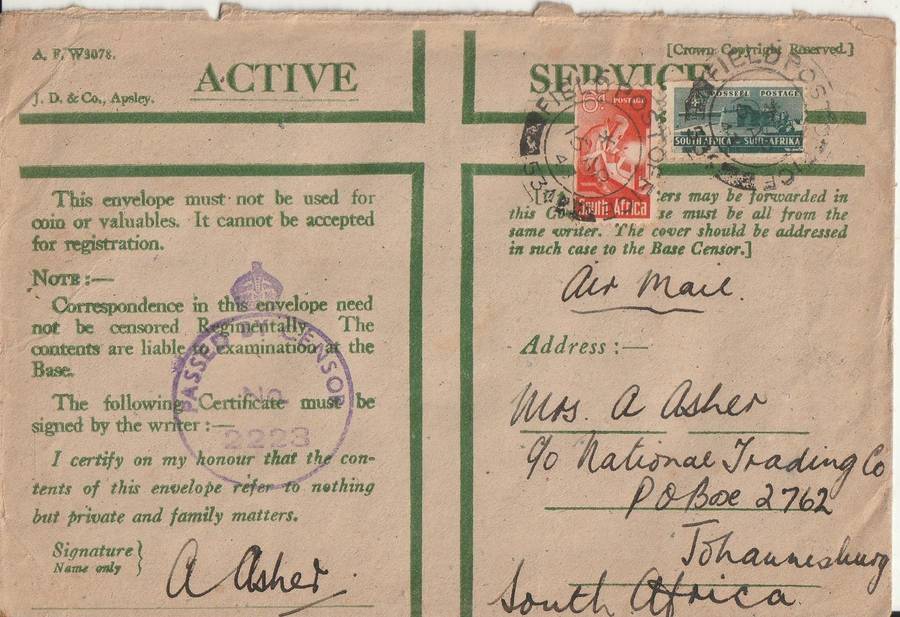 A. F. W3078.
[Crown Copyright Reserved.]
ACTIVE SERVICE
J. D. & Co., Apsley.
6D POSTAGE
South Africa
POSSEEL POSTAGE
SOUTH AFRICA SUID-AFRIKA
FIELD POST OFFICE
FIELD POST OFFICE
This envelope must not be used for
coin or valuables. It cannot be accepted
for registration.
NOTE :—
Correspondence in this envelope need
not be censored Regimentally. The
contents are liable to examination at the
Base.
The following Certificate must be
signed by the writer :—
I certify on my honour that the con-
tents of this envelope refer to nothing
but private and family matters.
Signature
Name only
A Asher
PASSED BY CENSOR
No
2223
may be forwarded in
this must be all from the
same writer. The cover should be addressed
in such case to the Base Censor.]
Air Mail.
Address :—
Mrs. A Asher
c/o National Trading Co
P O Box 2762
Johannesburg
South Africa.